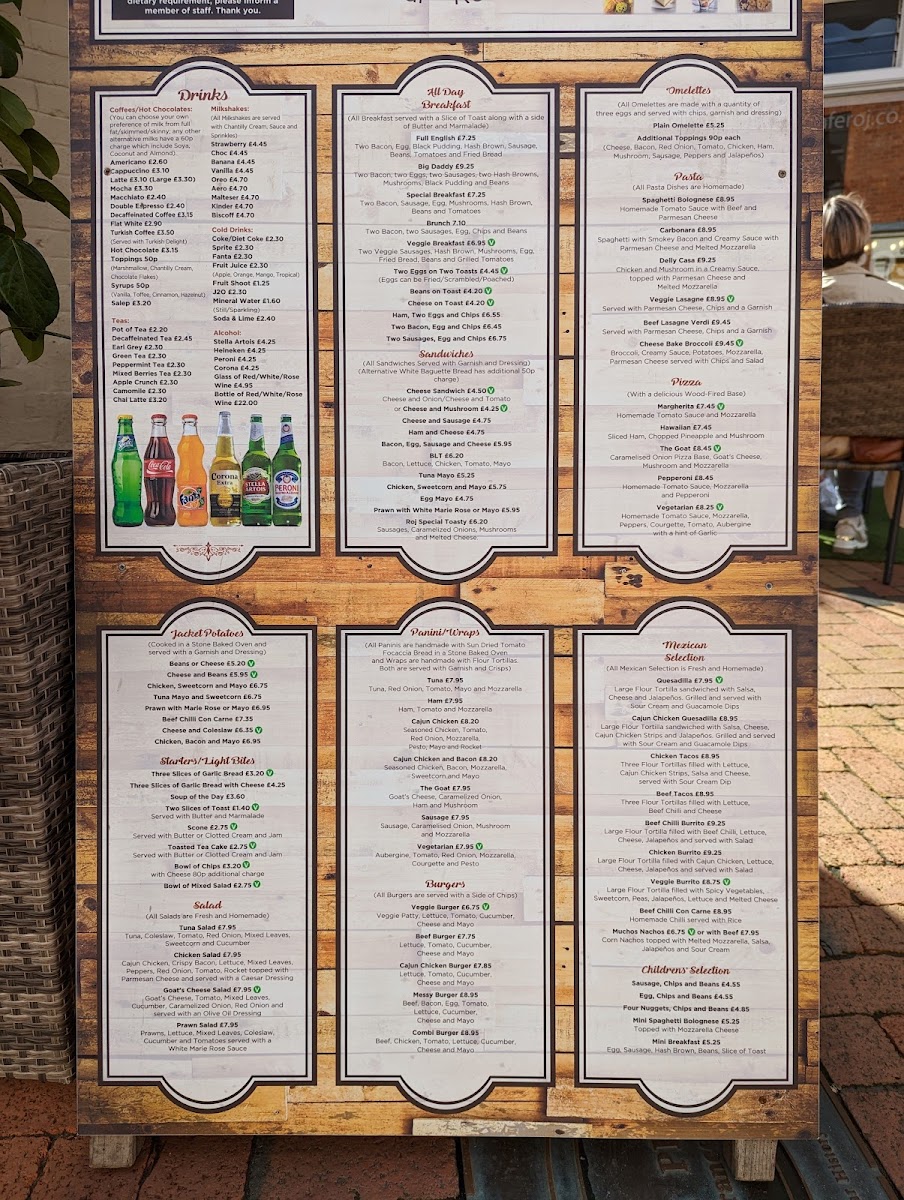 dietary requirement, please inform a
member of staff. Thank you.
Drinks
Coffees/Hot Chocolates:
(You can choose your own
preference of milk from full
fat/skimmed/skinny; any other
alternative milks have a 60p
charge which include Soya,
Coconut and Almond).
Americano £2.60
Cappuccino £3.10
Latte £3.10 (Large £3.30)
Mocha £3.30
Macchiato £2.40
Double Espresso £2.40
Decaffeinated Coffee £3.15
Flat White £2.90
Turkish Coffee £3.50
(Served with Turkish Delight)
Hot Chocolate £3.15
Toppings 50p
(Marshmallow, Chantilly Cream,
Chocolate Flakes)
Syrups 50p
(Vanilla, Toffee, Cinnamon, Hazelnut)
Salep £3.20
Teas:
Pot of Tea £2.20
Decaffeinated Tea £2.45
Earl Grey £2.30
Green Tea £2.30
Peppermint Tea £2.30
Mixed Berries Tea £2.30
Apple Crunch £2.30
Camomile £2.30
Chai Latte £3.20
Milkshakes:
(All Milkshakes are served
with Chantilly Cream, Sauce and
Sprinkles)
Strawberry £4.45
Choc £4.45
Banana £4.45
Vanilla £4.45
Oreo £4.70
Aero £4.70
Malteser £4.70
Kinder £4.70
Biscoff £4.70
Cold Drinks:
Coke/Diet Coke £2.30
Sprite £2.30
Fanta £2.30
Fruit Juice £2.30
(Apple, Orange, Mango, Tropical)
Fruit Shoot £1.25
J2O £2.30
Mineral Water £1.60
(Still/Sparkling)
Soda & Lime £2.40
Alcohol:
Stella Artois £4.25
Heineken £4.25
Peroni £4.25
Corona £4.25
Glass of Red/White/Rose
Wine £4.95
Bottle of Red/White/Rose
Wine £22.00
Coca-Cola
Fanta
Corona
Extra
STELLA
ARTOIS
PERONI
All Day
Breakfast
(All Breakfast served with a Slice of Toast along with a side
of Butter and Marmalade)
Full English £7.25
Two Bacon, Egg, Black Pudding, Hash Brown, Sausage,
Beans, Tomatoes and Fried Bread
Big Daddy £9.25
Two Bacon, two Eggs, two Sausages, two Hash Browns,
Mushrooms, Black Pudding and Beans
Special Breakfast £7.25
Two Bacon, Sausage, Egg, Mushrooms, Hash Brown,
Beans and Tomatoes
Brunch 7.10
Two Bacon, two Sausages, Egg, Chips and Beans
Veggie Breakfast £6.95 V
Two Veggie Sausages, Hash Brown, Mushrooms, Egg,
Fried Bread, Beans and Grilled Tomatoes
Two Eggs on Two Toasts £4.45 V
(Eggs can be Fried/Scrambled/Poached)
Beans on Toast £4.20 V
Cheese on Toast £4.20 V
Ham, Two Eggs and Chips £6.55
Two Bacon, Egg and Chips £6.45
Two Sausages, Egg and Chips £6.75
Sandwiches
(All Sandwiches Served with Garnish and Dressing)
(Alternative White Baguette Bread has additional 50p
charge)
Cheese Sandwich £4.50 V
Cheese and Onion/Cheese and Tomato
or Cheese and Mushroom £4.25 V
Cheese and Sausage £4.75
Ham and Cheese £4.75
Bacon, Egg, Sausage and Cheese £5.95
BLT £6.20
Bacon, Lettuce, Chicken, Tomato, Mayo
Tuna Mayo £5.25
Chicken, Sweetcorn and Mayo £5.75
Egg Mayo £4.75
Prawn with White Marie Rose or Mayo £5.95
Roj Special Toasty £6.20
Sausages, Caramelized Onions, Mushrooms
and Melted Cheese.
Omelettes
(All Omelettes are made with a quantity of
three eggs and served with chips, garnish and dressing)
Plain Omelette £5.25
Additional Toppings 90p each
(Cheese, Bacon, Red Onion, Tomato, Chicken, Ham,
Mushroom, Sausage, Peppers and Jalapeños)
Pasta
(All Pasta Dishes are Homemade)
Spaghetti Bolognese £8.95
Homemade Tomato Sauce with Beef and
Parmesan Cheese
Carbonara £8.95
Spaghetti with Smokey Bacon and Creamy Sauce with
Parmesan Cheese and Melted Mozzarella
Delly Casa £9.25
Chicken and Mushroom in a Creamy Sauce,
topped with Parmesan Cheese and
Melted Mozzarella
Veggie Lasagne £8.95 V
Served with Parmesan Cheese, Chips and a Garnish
Beef Lasagne Verdi £9.45
Served with Parmesan Cheese, Chips and a Garnish
Cheese Bake Broccoli £9.45 V
Broccoli, Creamy Sauce, Potatoes, Mozzarella,
Parmesan Cheese served with Chips and Salad
Pizza
(With a delicious Wood-Fired Base)
Margherita £7.45 V
Homemade Tomato Sauce and Mozzarella
Hawaiian £7.45
Sliced Ham, Chopped Pineapple and Mushroom
The Goat £8.45 V
Caramelised Onion Pizza Base, Goat's Cheese,
Mushroom and Mozzarella
Pepperoni £8.45
Homemade Tomato Sauce, Mozzarella
and Pepperoni
Vegetarian £8.25 V
Homemade Tomato Sauce, Mozzarella,
Peppers, Courgette, Tomato, Aubergine
with a hint of Garlic
Jacket Potatoes
(Cooked in a Stone Baked Oven and
served with a Garnish and Dressing)
Beans or Cheese £5.20 V
Cheese and Beans £5.95 V
Chicken, Sweetcorn and Mayo £6.75
Tuna Mayo and Sweetcorn £6.75
Prawn with Marie Rose or Mayo £6.95
Beef Chilli Con Carne £7.35
Cheese and Coleslaw £6.35 V
Chicken, Bacon and Mayo £6.95
Starters/Light Bites
Three Slices of Garlic Bread £3.20 V
Three Slices of Garlic Bread with Cheese £4.25
Soup of the Day £3.60
Two Slices of Toast £1.40 V
Served with Butter and Marmalade
Scone £2.75 V
Served with Butter or Clotted Cream and Jam
Toasted Tea Cake £2.75 V
Served with Butter or Clotted Cream and Jam
Bowl of Chips £3.20 V
with Cheese 80p additional charge
Bowl of Mixed Salad £2.75 V
Salad
(All Salads are Fresh and Homemade)
Tuna Salad £7.95
Tuna, Coleslaw, Tomato, Red Onion, Mixed Leaves,
Sweetcorn and Cucumber
Chicken Salad £7.95
Cajun Chicken, Crispy Bacon, Lettuce, Mixed Leaves,
Peppers, Red Onion, Tomato, Rocket topped with
Parmesan Cheese and served with a Caesar Dressing
Goat's Cheese Salad £7.95 V
Goat's Cheese, Tomato, Mixed Leaves,
Cucumber, Caramelized Onion, Red Onion and
served with an Olive Oil Dressing
Prawn Salad £7.95
Prawns, Lettuce, Mixed Leaves, Coleslaw,
Cucumber and Tomatoes served with a
White Marie Rose Sauce
Panini/Wraps
(All Paninis are handmade with Sun Dried Tomato
Focaccia Bread in a Stone Baked Oven
and Wraps are handmade with Flour Tortillas.
Both are served with Garnish and Crisps)
Tuna £7.95
Tuna, Red Onion, Tomato, Mayo and Mozzarella
Ham £7.95
Ham, Tomato and Mozzarella
Cajun Chicken £8.20
Seasoned Chicken, Tomato,
Red Onion, Mozzarella,
Pesto, Mayo and Rocket
Cajun Chicken and Bacon £8.20
Seasoned Chicken, Bacon, Mozzarella,
Sweetcorn and Mayo
The Goat £7.95
Goat's Cheese, Caramelized Onion,
Ham and Mushroom
Sausage £7.95
Sausage, Caramelised Onion, Mushroom
and Mozzarella
Vegetarian £7.95 V
Aubergine, Tomato, Red Onion, Mozzarella,
Courgette and Pesto
Burgers
(All Burgers are served with a Side of Chips)
Veggie Burger £6.75 V
Veggie Patty, Lettuce, Tomato, Cucumber,
Cheese and Mayo
Beef Burger £7.75
Lettuce, Tomato, Cucumber,
Cheese and Mayo
Cajun Chicken Burger £7.85
Lettuce, Tomato, Cucumber,
Cheese and Mayo
Messy Burger £8.95
Beef, Bacon, Egg, Tomato,
Lettuce, Cucumber,
Cheese and Mayo
Combi Burger £8.95
Beef, Chicken, Tomato, Lettuce, Cucumber,
Cheese and Mayo
Mexican
Selection
(All Mexican Selection is Fresh and Homemade)
Quesadilla £7.95 V
Large Flour Tortilla sandwiched with Salsa,
Cheese and Jalapeños. Grilled and served with
Sour Cream and Guacamole Dips
Cajun Chicken Quesadilla £8.95
Large Flour Tortilla sandwiched with Salsa, Cheese,
Cajun Chicken Strips and Jalapeños. Grilled and served
with Sour Cream and Guacamole Dips
Chicken Tacos £8.95
Three Flour Tortillas filled with Lettuce,
Cajun Chicken Strips, Salsa and Cheese,
served with Sour Cream Dip
Beef Tacos £8.95
Three Flour Tortillas filled with Lettuce,
Beef Chilli and Cheese
Beef Chilli Burrito £9.25
Large Flour Tortilla filled with Beef Chilli, Lettuce,
Cheese, Jalapeños and served with Salad
Chicken Burrito £9.25
Large Flour Tortilla filled with Cajun Chicken, Lettuce,
Cheese, Jalapeños and served with Salad
Veggie Burrito £8.75 V
Large Flour Tortilla filled with Spicy Vegetables,
Sweetcorn, Peas, Jalapeños, Lettuce and Melted Cheese
Beef Chilli Con Carne £8.95
Homemade Chilli served with Rice
Muchos Nachos £6.75 V or with Beef £7.95
Corn Nachos topped with Melted Mozzarella, Salsa,
Jalapeños and Sour Cream
Childrens' Selection
Sausage, Chips and Beans £4.55
Egg, Chips and Beans £4.55
Four Nuggets, Chips and Beans £4.85
Mini Spaghetti Bolognese £5.25
Topped with Mozzarella Cheese
Mini Breakfast £5.25
Egg, Sausage, Hash Brown, Beans, Slice of Toast
feroj.co.